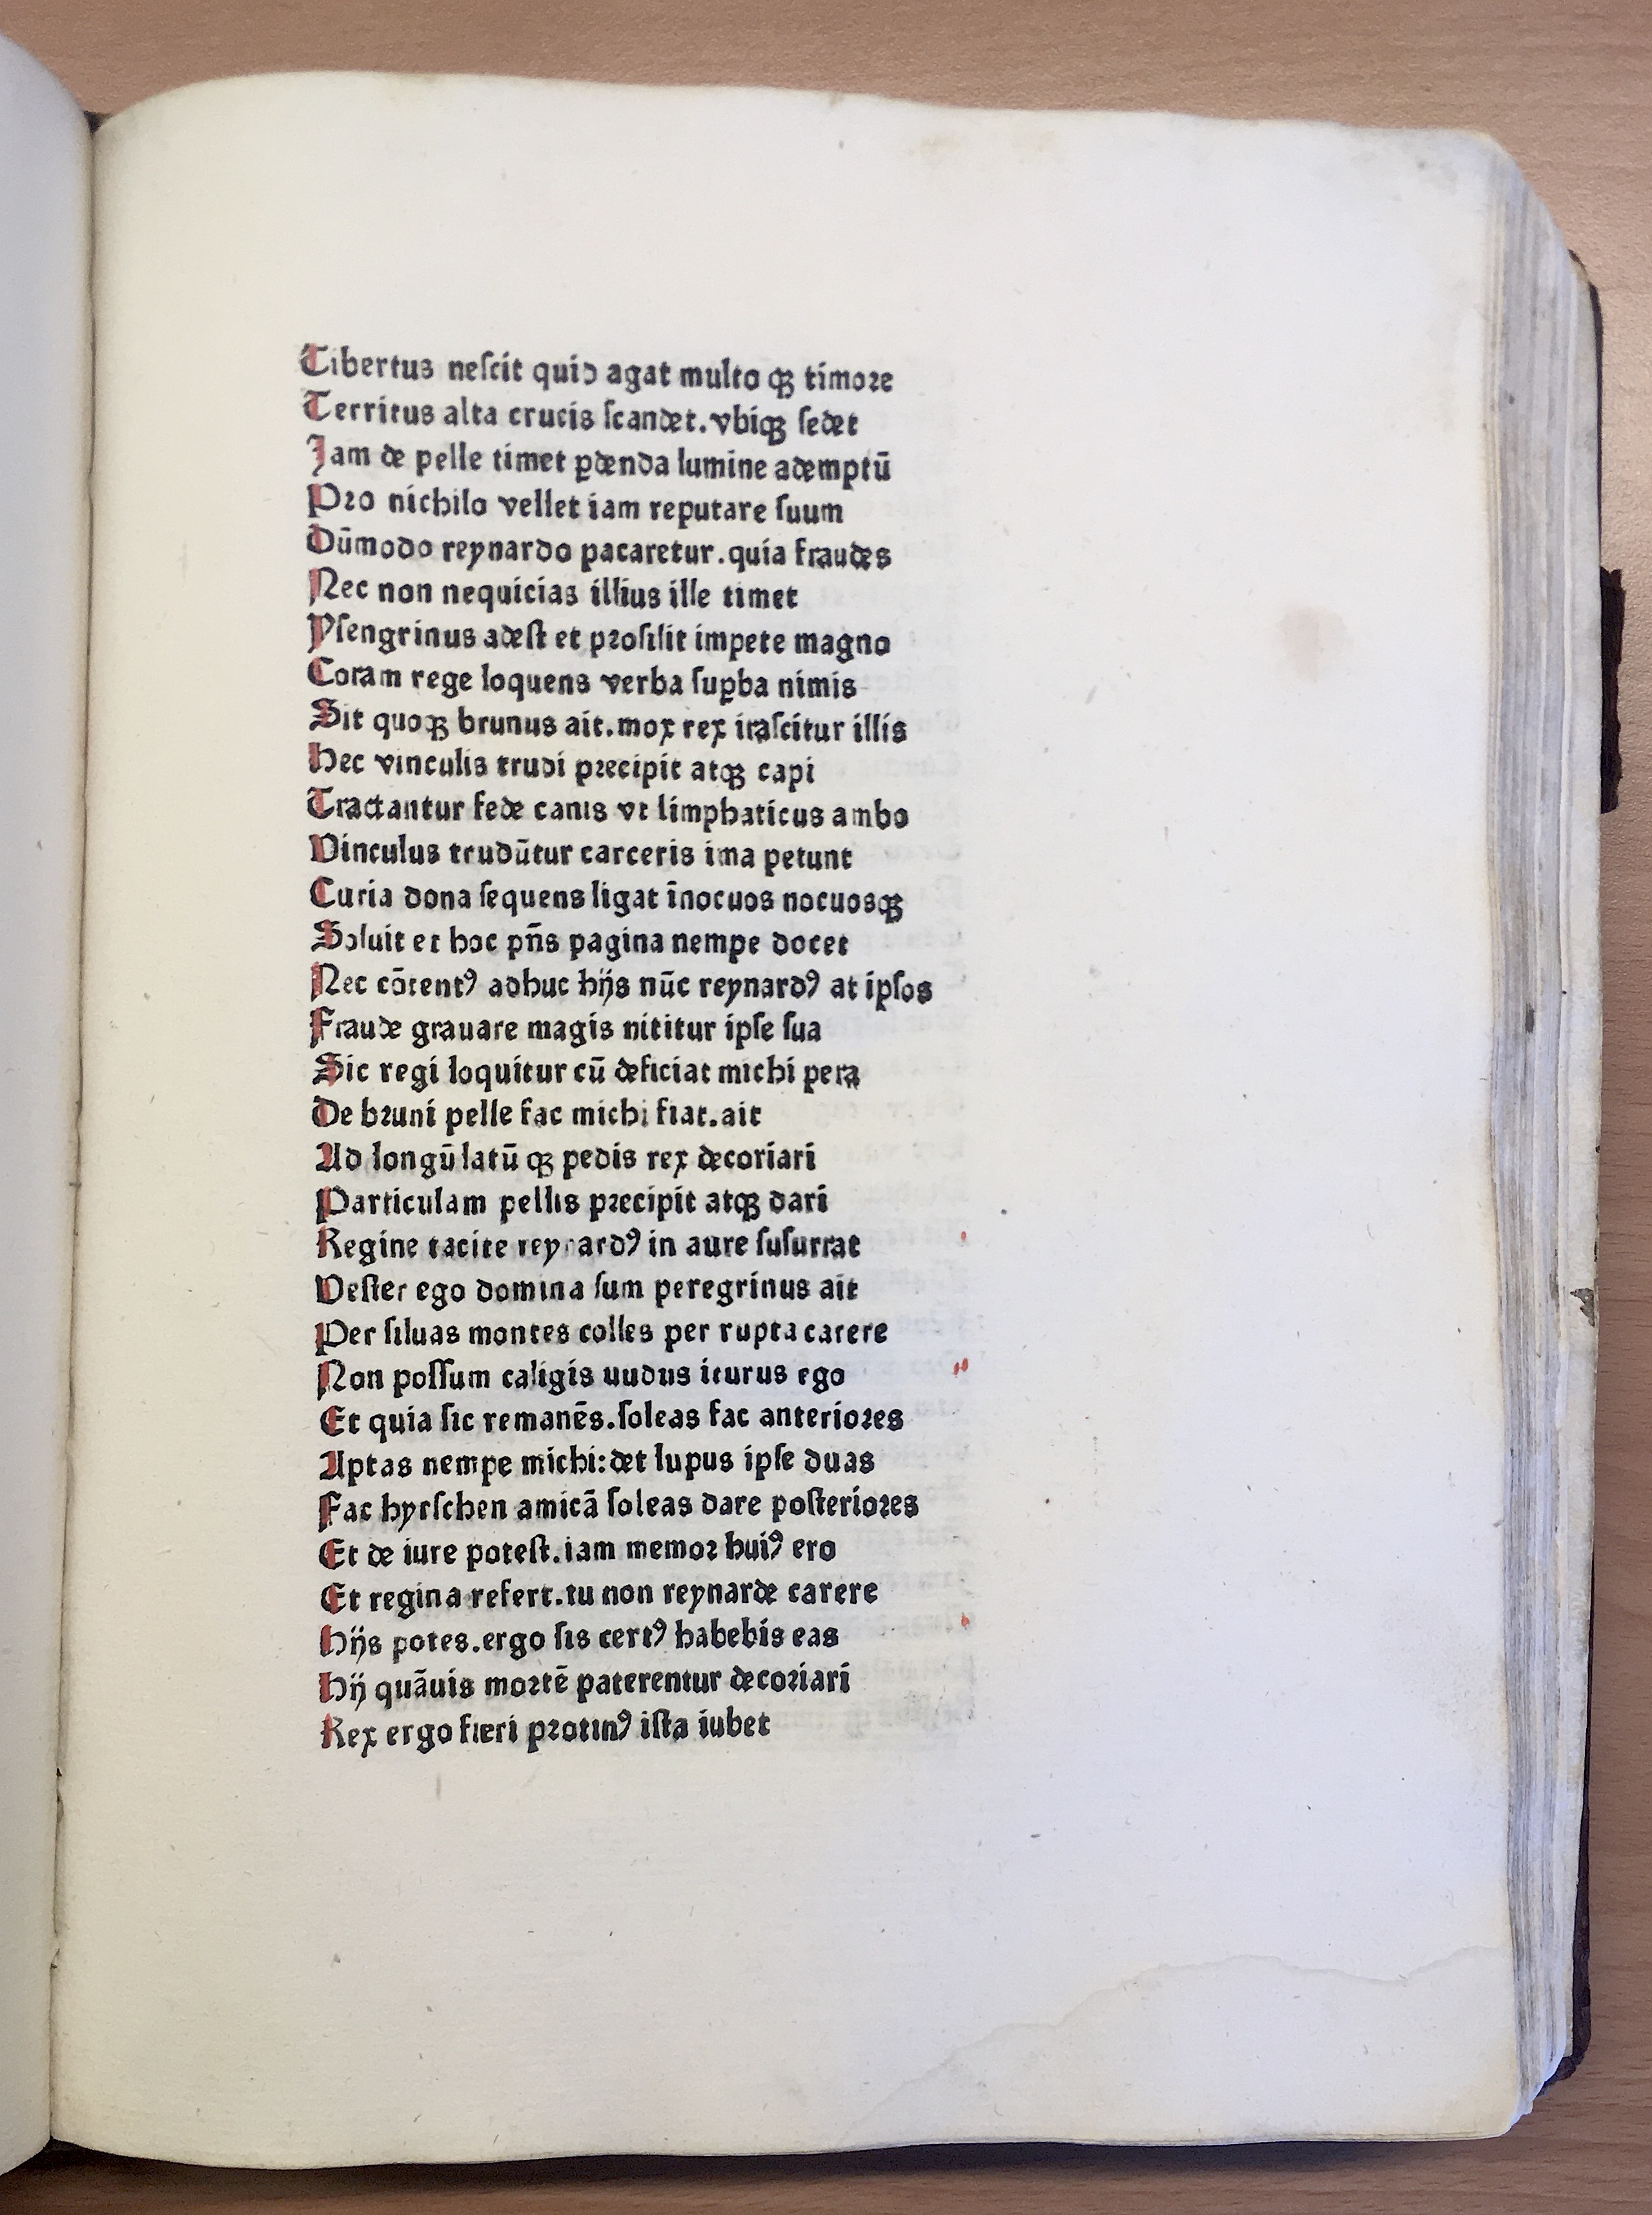 Tibertus neſcit quid agat multo qꝫ timoꝛe
Territus alta crucis ſcandet. vbiqꝫ ſedet
Jam de pelle timet ꝑdenda lumine ademptū
Pꝛo nichilo vellet iam reputare ſuum
Dūmodo reynardo pacaretur. quia fraudes
Nec non nequicias illius ille timet
Yſengrinus adeſt et pꝛoſilit impete magno
Coram rege loquens verba ſuꝑba nimis
Sit quoqꝫ brunus ait. mox rex iraſcitur illis
Hec vinculis trudi pꝛecipit atqꝫ capi
Tractantur fede canis vt limphaticus ambo
Vinculus trudūtur carceris ima petunt
Curia dona ſequens ligat īnocuos nocuosqꝫ
Soluit et hoc pn̄s pagina nempe docet
Nec cōtentꝰ adhuc hijs nūc reynardꝰ at ipſos
Fraude grauare magis nititur ipſe ſua
Sic regi loquitur cū deficiat michi pera
De bꝛuni pelle fac michi fiat. ait
Ad longū latū qꝫ pedis rex decoriari
Particulam pellis pꝛecipit atqꝫ dari
Regine tacite reynardꝰ in aure ſuſurrat
Veſter ego domina ſum peregrinus ait
Per ſiluas montes colles per rupta carere
Non poſſum caligis uudus iturus ego
Et quia ſic remanēs. ſoleas fac anterioꝛes
Aptas nempe michi: det lupus ipſe duas
Fac hyrſchen amicā ſoleas dare poſterioꝛes
Et de iure poteſt. iam memoꝛ huiꝰ ero
Et regina refert. tu non reynarde carere
Hijs potes. ergo ſis certꝰ habebis eas
Hij quāuis moꝛtē paterentur decoꝛiari
Rex ergo fieri pꝛotinꝰ iſta iubet